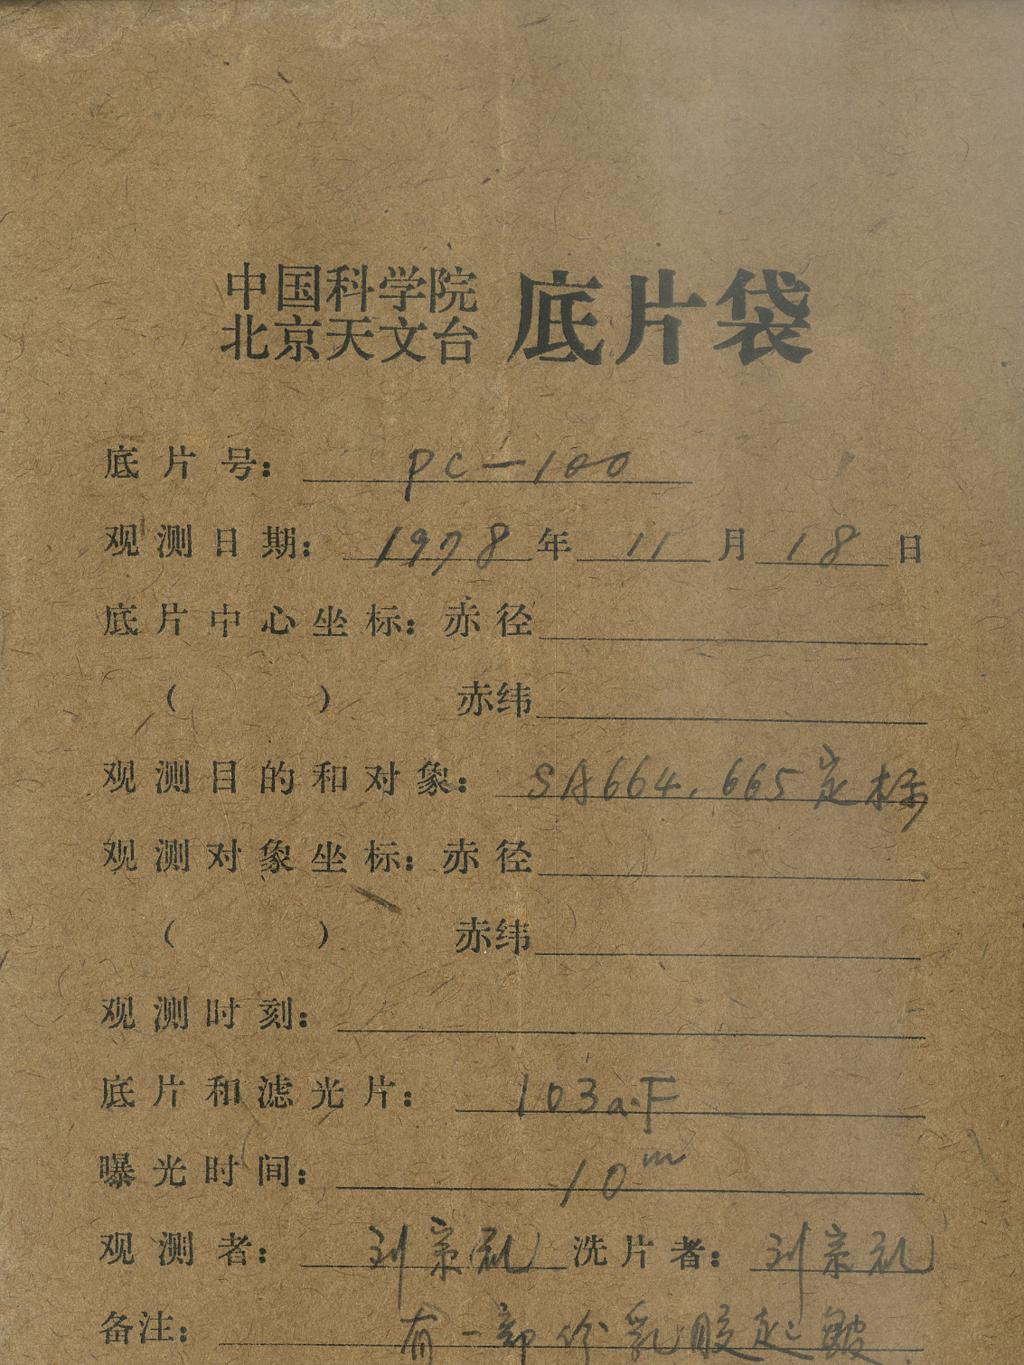 中国科学院
北京天文台 底片袋
底片号: PC-100
观测日期: 1978年 11月 18日
底片中心坐标: 赤径
( ) 赤纬
观测目的和对象: SA664, 665定标
观测对象坐标: 赤径
( ) 赤纬
观测时刻:
底片和滤光片: 103a-F
曝光时间: 10m
观测者: 刘宗礼 洗片者: 刘宗礼
备注: 有一部份乳胶起皱